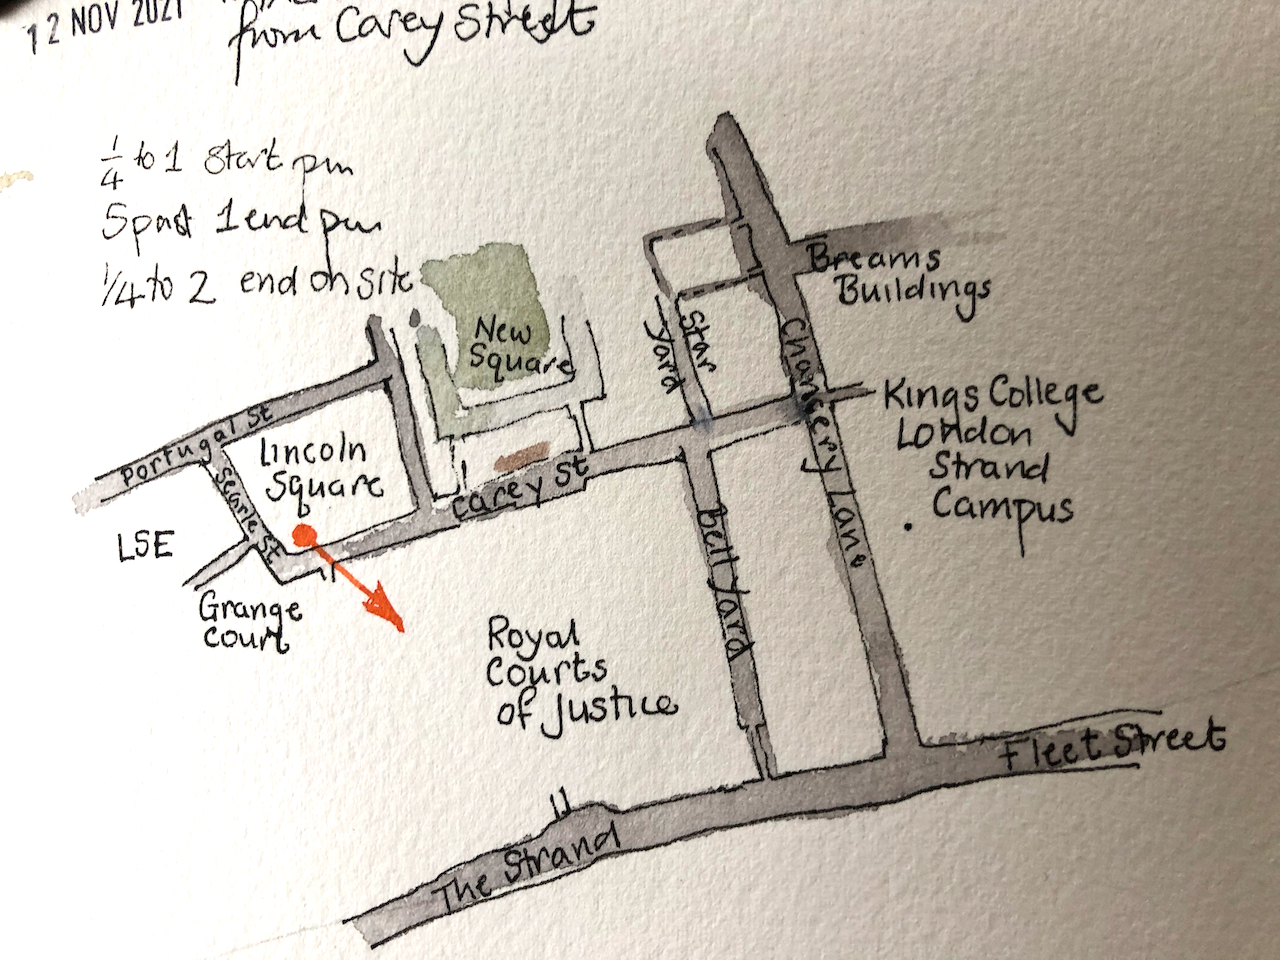 12 NOV 2021
from Carey Street
1/4 to 1 start pm
5 past 1 end pm
1/4 to 2 end on site
New
Square
Breams
Buildings
Star
Yard
Chancery Lane
Kings College
London
Strand
Campus
Portugal St
Lincoln
Square
Searle St
Carey St
LSE
Grange
court
Bell Yard
Royal
Courts
of Justice
Fleet Street
The Strand